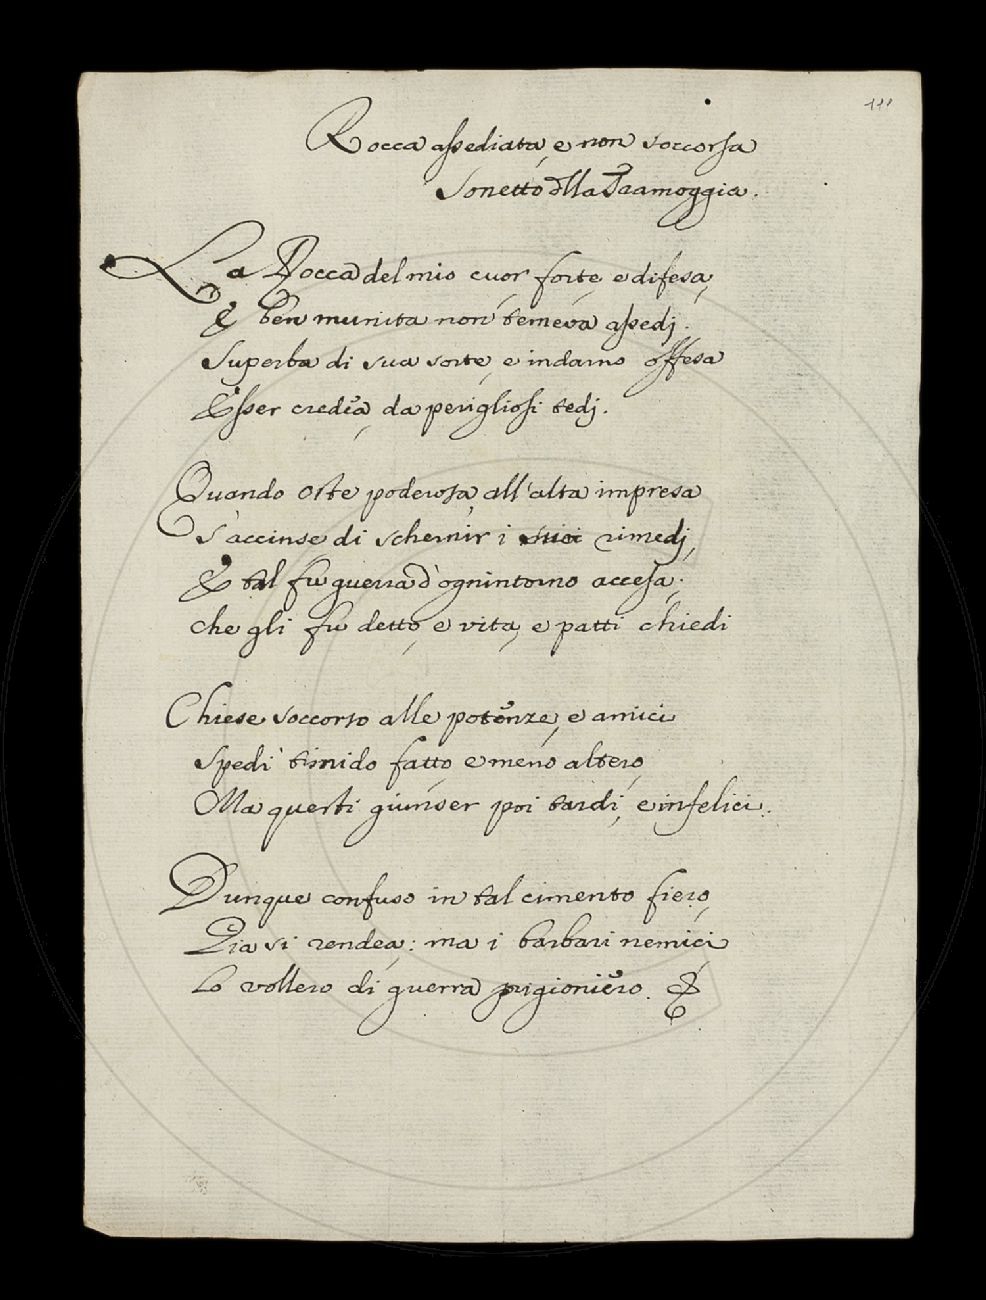 111
Rocca assediata, e non soccorsa
Sonetto dlla Tramoggia.
La Rocca del mio cuor forte, e difesa,
E ben munita non temeva assedj.
Superba di sua sorte, e indarno offesa
Esser credea, da perigliosi tedj.
Quando oste poderosa, all'alta impresa
S'accinse di schernir i suoi rimedj,
E tal fu guerra d'ognintorno accesa;
Che gli fu detto, e vita, e patti chiedi
Chiese soccorso alle potenze, e amici
Spedì timido fatto, e meno altero,
Ma questi giunser poi tardi, e infelici.
Dunque confuso in tal cimento fiero,
Già si rendea; ma i barbari nemici
Lo vollero di guerra prigioniero.